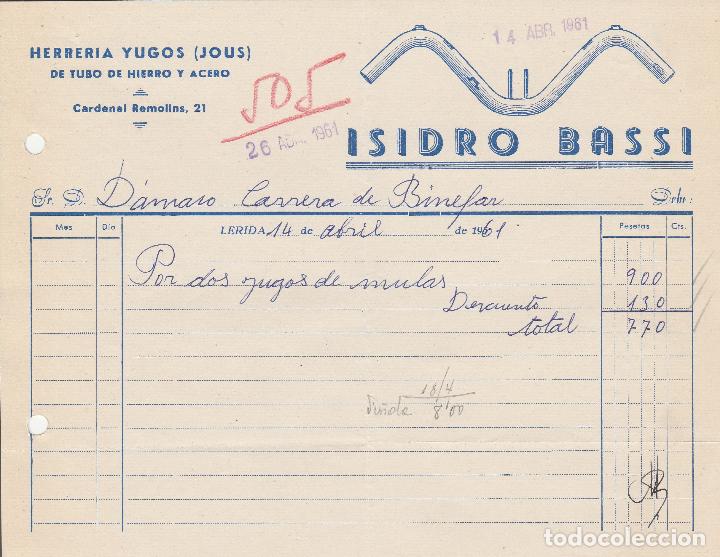 HERRERIA YUGOS (JOUS)
DE TUBO DE HIERRO Y ACERO
Cardenal Remolins, 21
505
14 ABR. 1961
26 ABR. 1961
ISIDRO BASSI
Sr. D. Dámaso Carrera de Binefar Debe:
Mes Día LERIDA 14 de abril de 1961 Pesetas Cts.
Por dos yugos de mulas 900
Descuento 130
total 770
18/4
8'00
todocoleccion.net